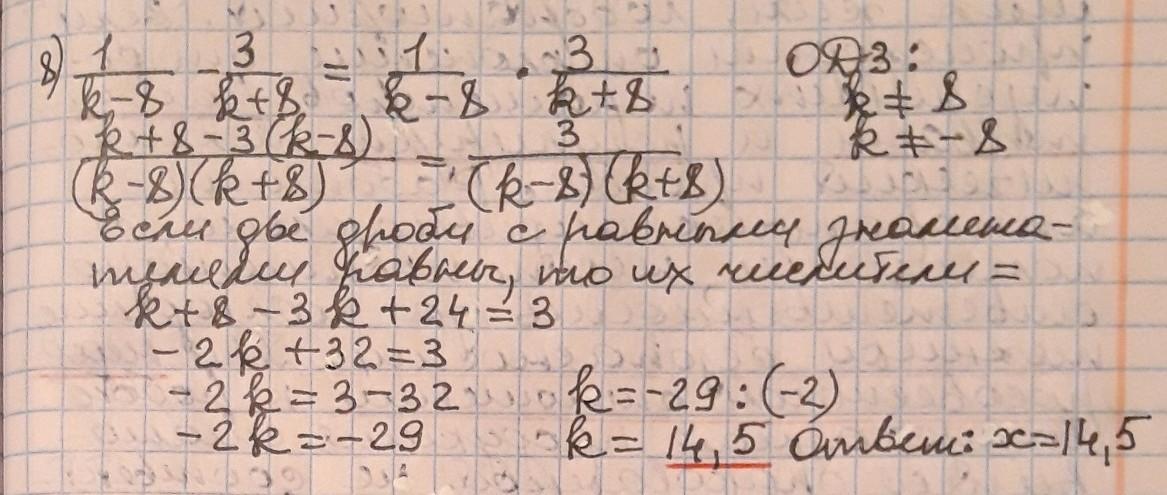 8) 1/(k-8) - 3/(k+8) = 1/(k-8) · 3/(k+8)
ОДЗ:
k ≠ 8
k ≠ -8
(k+8-3(k-8))/((k-8)(k+8)) = 3/((k-8)(k+8))
Если две дроби с равными знамена-
телями равны, то их числители =
k+8-3k+24=3
-2k+32=3
-2k=3-32
-2k=-29
k=-29:(-2)
k=14,5 Ответ: x=14,5